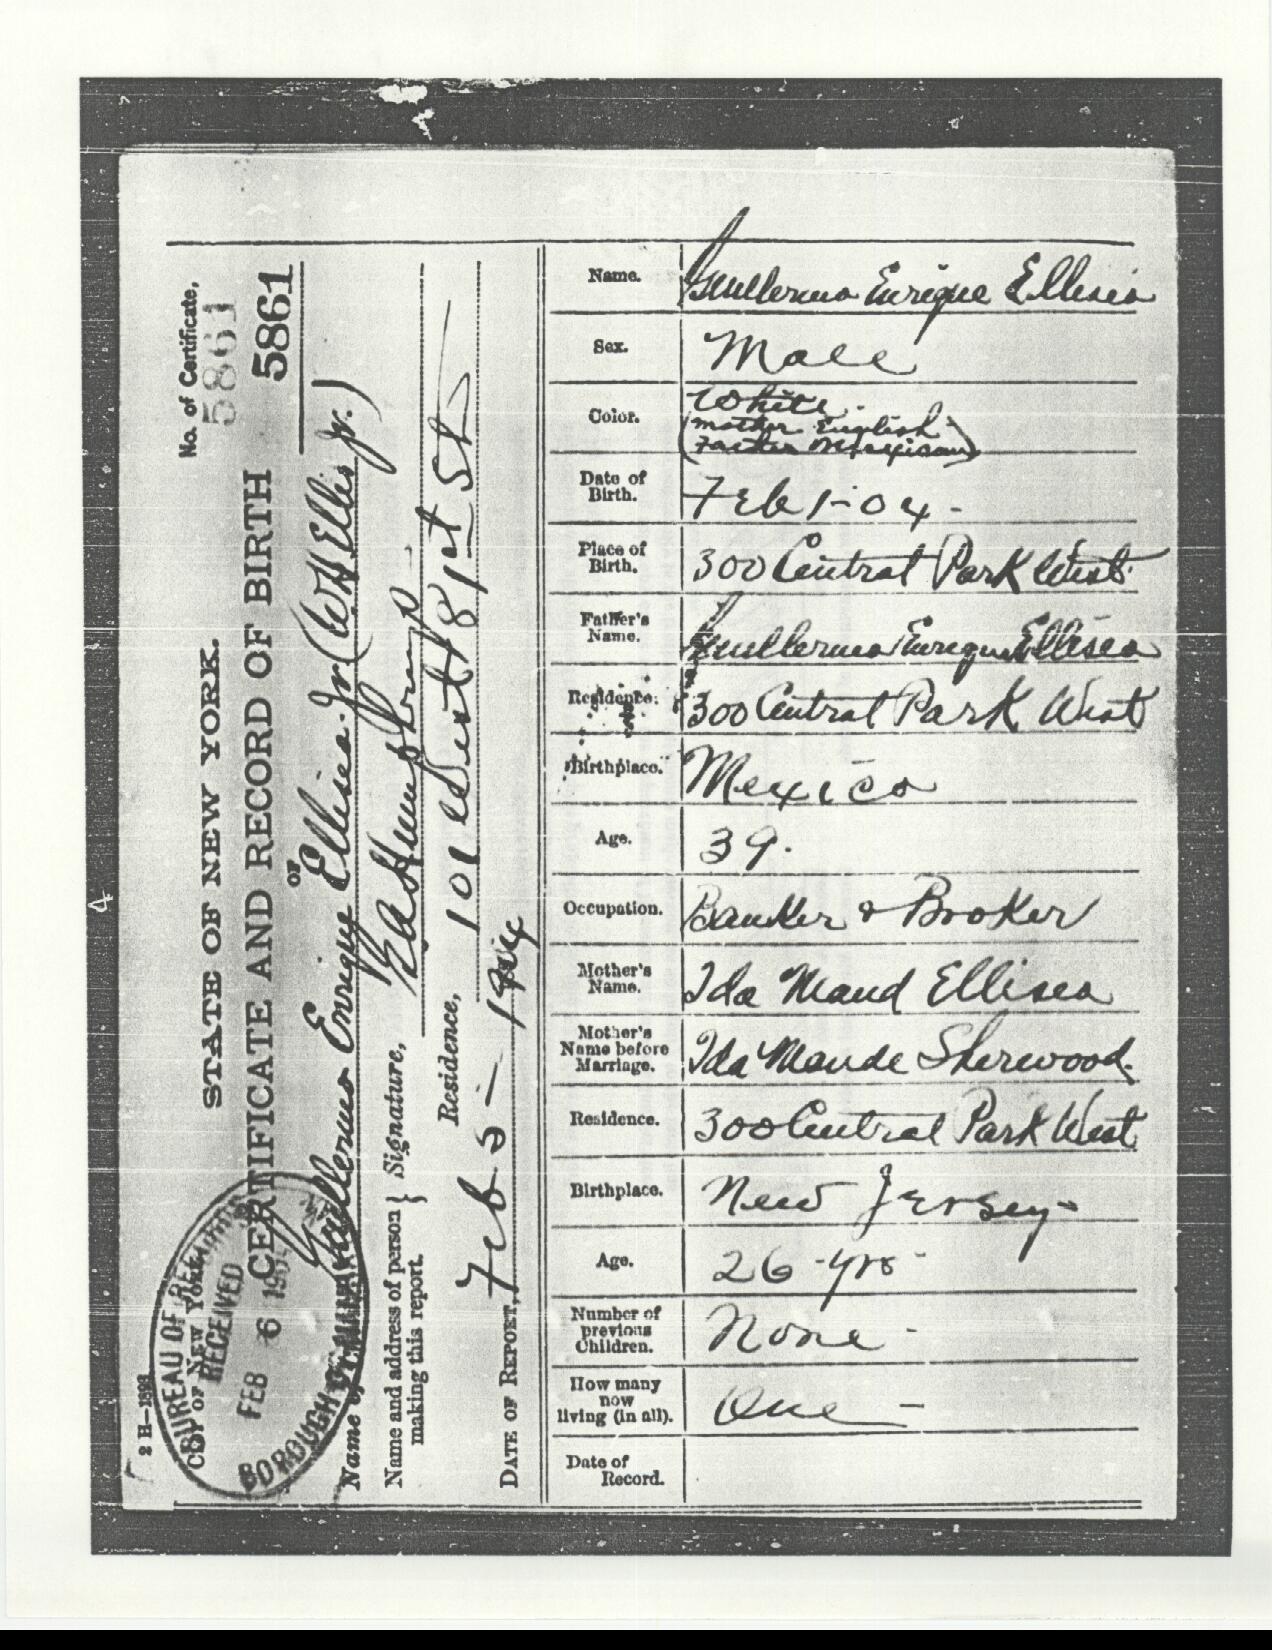 2 H—1893
STATE OF NEW YORK.
No. of Certificate,
5861
CERTIFICATE AND RECORD OF BIRTH
5861
OF
Guillermo Enrique Ellisea Jr (W H Ellis Jr.)
Name and address of person making this report. } Signature, E A Humphreys
Residence, 101 West 81st St
DATE OF REPORT, Feb 5 — 1904
BUREAU OF RECORDS
CITY OF NEW YORK
RECEIVED
FEB 6 1904
BOROUGH OF
Name. Guillermo Enrique Ellisea
Sex. Male
Color. White
(Mother English
Father Mexican)
Date of Birth. Feb 1-04-
Place of Birth. 300 Central Park West
Father's Name. Guillermo Enrique Ellisea
Residence. 300 Central Park West
Birthplace. Mexico
Age. 39.
Occupation. Banker & Brooker
Mother's Name. Ida Maud Ellisea
Mother's Name before Marriage. Ida Maude Sherwood.
Residence. 300 Central Park West
Birthplace. New Jersey-
Age. 26-yrs-
Number of previous Children. None-
How many now living (in all). One—
Date of Record.